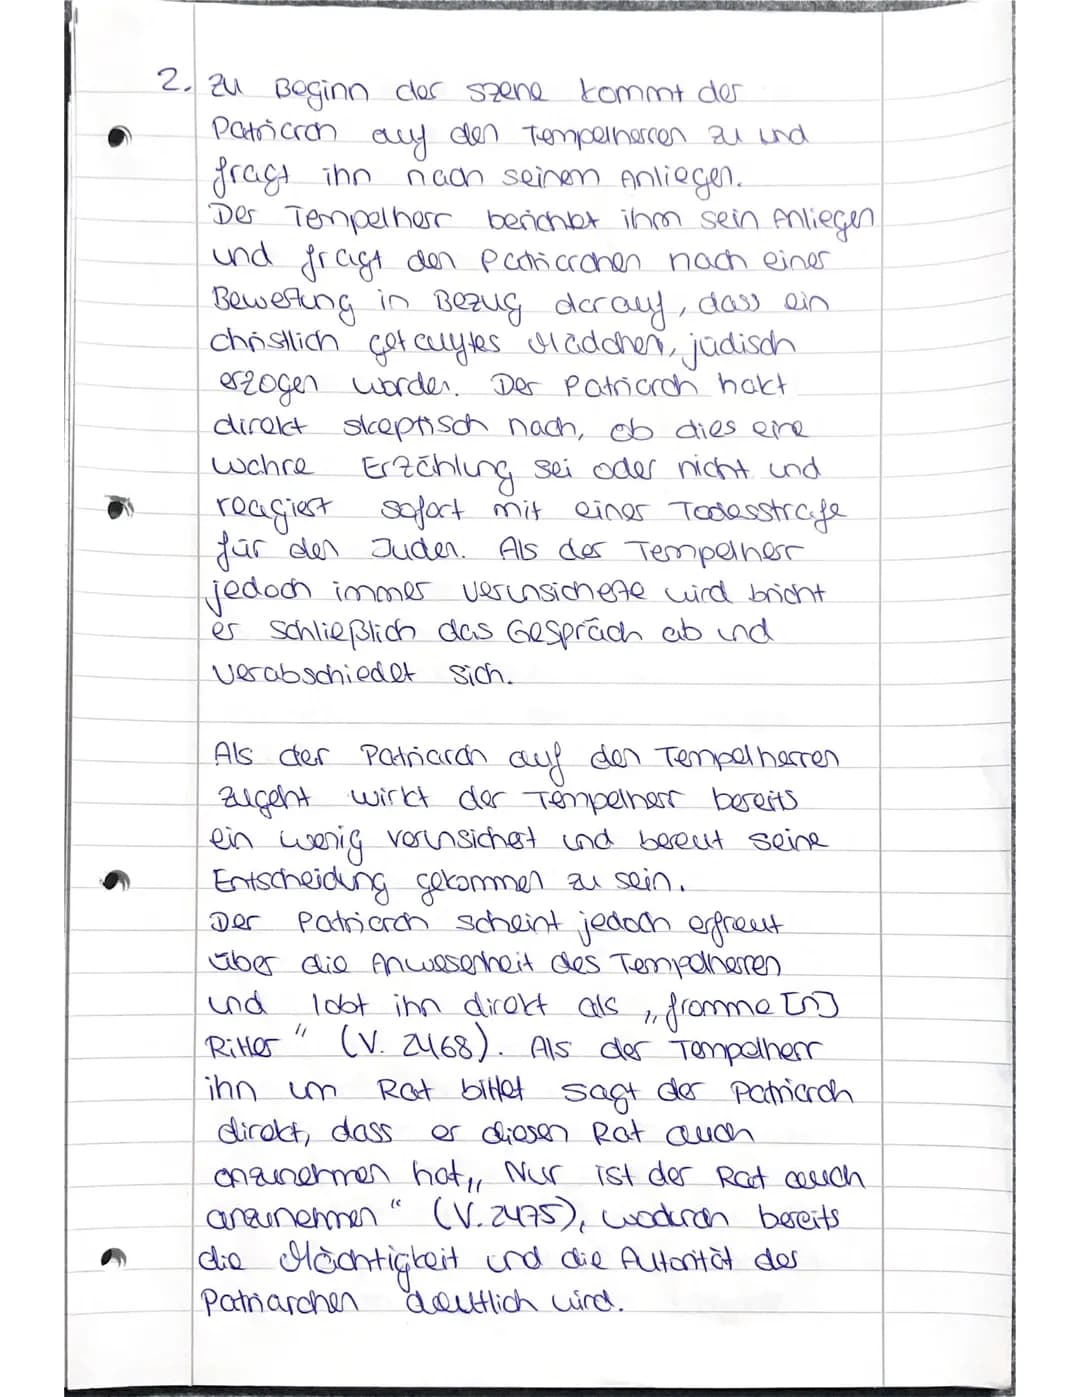 2. zu Beginn der Szene kommt der
Patriarch auf den Tempelherren zu und
fragt ihn nach seinem Anliegen.
Der Tempelherr berichtet ihm sein Anliegen
und fragt den Patriarchen nach einer
Bewertung in Bezug darauf, dass ein
christlich getauftes Mädchen, jüdisch
erzogen worden. Der Patriarch hakt
direkt skeptisch nach, ob dies eine
wahre Erzählung sei oder nicht und
reagiert sofort mit einer Todesstrafe
für den Juden. Als der Tempelherr
jedoch immer verunsicherte wird bricht
er schließlich das Gespräch ab und
verabschiedet sich.
Als der Patriarch auf den Tempelherren
zugeht wirkt der Tempelherr bereits
ein wenig verunsichert und bereut seine
Entscheidung gekommen zu sein.
Der Patriarch scheint jedoch erfreut
über die Anwesenheit des Tempelherren
und lobt ihn direkt als „fromme[n]
Ritter" (V. 2468). Als der Tempelherr
ihn um Rat bittet sagt der Patriarch
direkt, dass er diesen Rat auch
anzunehmen hat„ Nur ist der Rat auch
anzunehmen" (V. 2475), wodurch bereits
die Mächtigkeit und die Autorität des
Patriarchen deutlich wird.